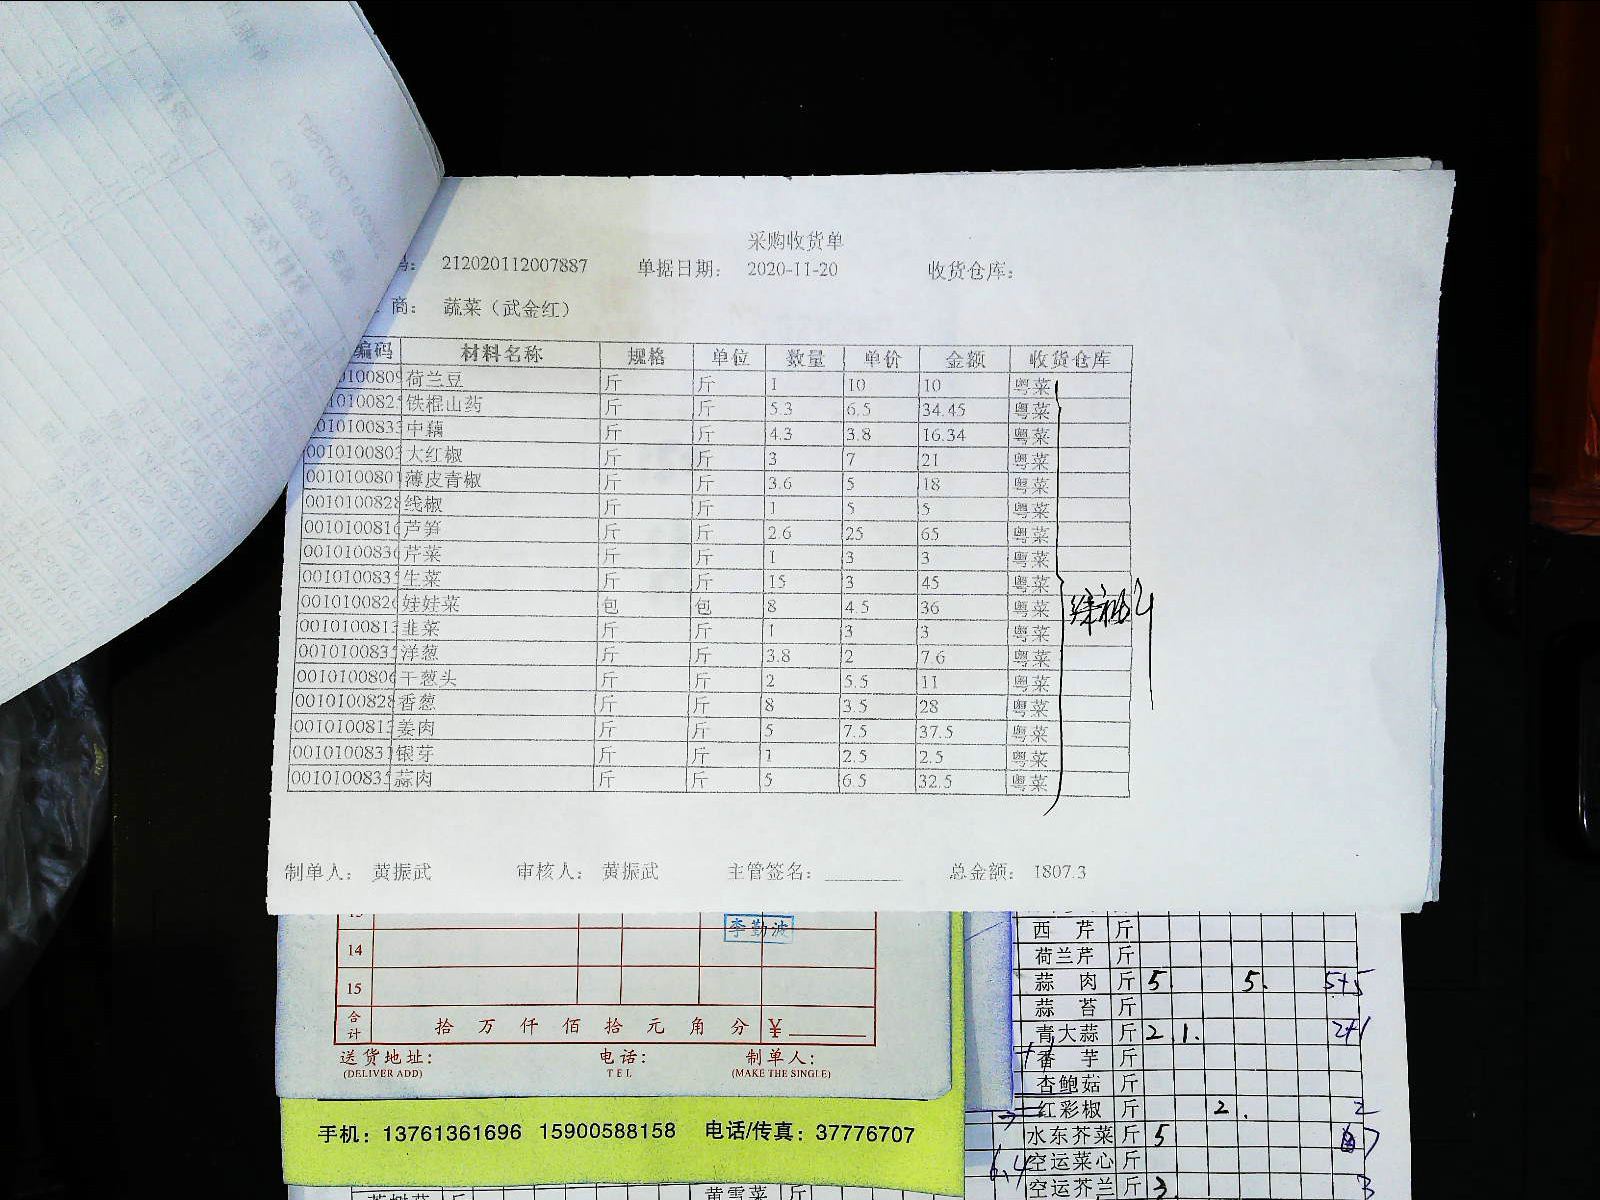 采购收货单
码: 212020112007887 单据日期: 2020-11-20 收货仓库:
商: 蔬菜（武金红）
编码 材料名称 规格 单位 数量 单价 金额 收货仓库
0100809 荷兰豆 斤 斤 1 10 10 粤菜
1010082 铁棍山药 斤 斤 5.3 6.5 34.45 粤菜
010100833 中藕 斤 斤 4.3 3.8 16.34 粤菜
0010100803 大红椒 斤 斤 3 7 21 粤菜
0010100801 薄皮青椒 斤 斤 3.6 5 18 粤菜
0010100828 线椒 斤 斤 1 5 5 粤菜
0010100816 芦笋 斤 斤 2.6 25 65 粤菜
0010100836 芹菜 斤 斤 1 3 3 粤菜
001010083 生菜 斤 斤 15 3 45 粤菜
0010100826 娃娃菜 包 包 8 4.5 36 粤菜
001010081 韭菜 斤 斤 1 3 3 粤菜
001010083 洋葱 斤 斤 3.8 2 7.6 粤菜
0010100806 干葱头 斤 斤 2 5.5 11 粤菜
0010100828 香葱 斤 斤 8 3.5 28 粤菜
001010081 姜肉 斤 斤 5 7.5 37.5 粤菜
001010083 银芽 斤 斤 1 2.5 2.5 粤菜
001010083 蒜肉 斤 斤 5 6.5 32.5 粤菜
制单人: 黄振武 审核人: 黄振武 主管签名: 总金额: 1807.3
李勤波
14
15
合计 拾 万 仟 佰 拾 元 角 分 ¥
送货地址: 电话: 制单人:
(DELIVER ADD) TEL (MAKE THE SINGLE)
手机: 13761361696 15900588158 电话/传真: 37776707
西芹 斤
荷兰芹 斤
蒜肉 斤 5 5. 5+5
蒜苔 斤
青大蒜 斤 2 1. 2+1
香芋 斤
杏鲍菇 斤
红彩椒 斤 2. 2
水东芥菜 斤 5 7
6.4 空运菜心 斤
空运芥兰 斤 3. 3
黄雪菜 斤